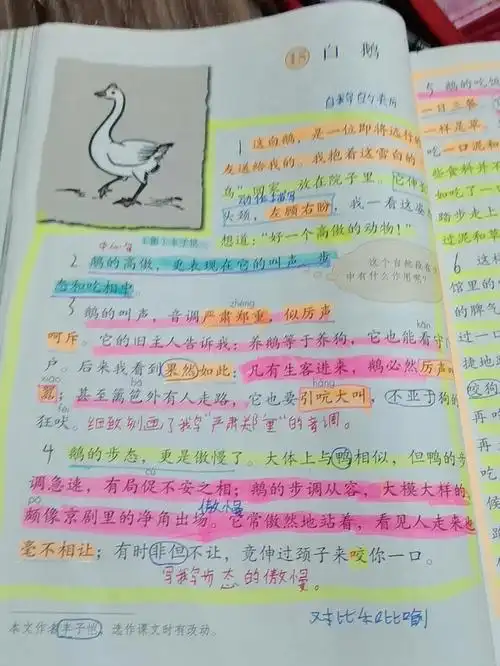 15 白 鹅
1 这白鹅，是一位即将远行的
友送给我的。我抱着这雪白的
鸟”回家，放在院子里。它伸
动作描写
头颈，左顾右盼，我一看这姿
想道：“好一个高傲的动物！”
中心句
2 鹅的高傲，更表现在它的叫声、步
态和吃相中。
这个自然段在
中有什么作用呢？
zhèng
3 鹅的叫声，音调严肃郑重，似厉声
hān
呵斥。它的旧主人告诉我：养鹅等于养狗，它也能看守
户。后来我看到果然如此：凡有生客进来，鹅必然厉声叫
xiāo bā háng
嚣；甚至篱笆外有人走路，它也要引吭大叫，不亚于狗的
fèi
狂吠。细致刻画了我的“严肃郑重”的音调。
4 鹅的步态，更是傲慢了。大体上与鸭相似，但鸭的步
cù
调急速，有局促不安之相；鹅的步调从容，大模大样的，
pō 傲慢
颇像京剧里的净角出场。它常傲然地站着，看见人走来也
毫不相让；有时非但不让，竟伸过颈子来咬你一口。
写鹅步态的傲慢。
对比和比喻
本文作者丰子恺，选作课文时有改动。
5 鹅的吃饭
一日三餐
一样是草
吃一口泥和
些食料并不
如吃了一
踏步走上
过泥和草
6 这样
馆里的
过一口
捷地
咬狗
再吃